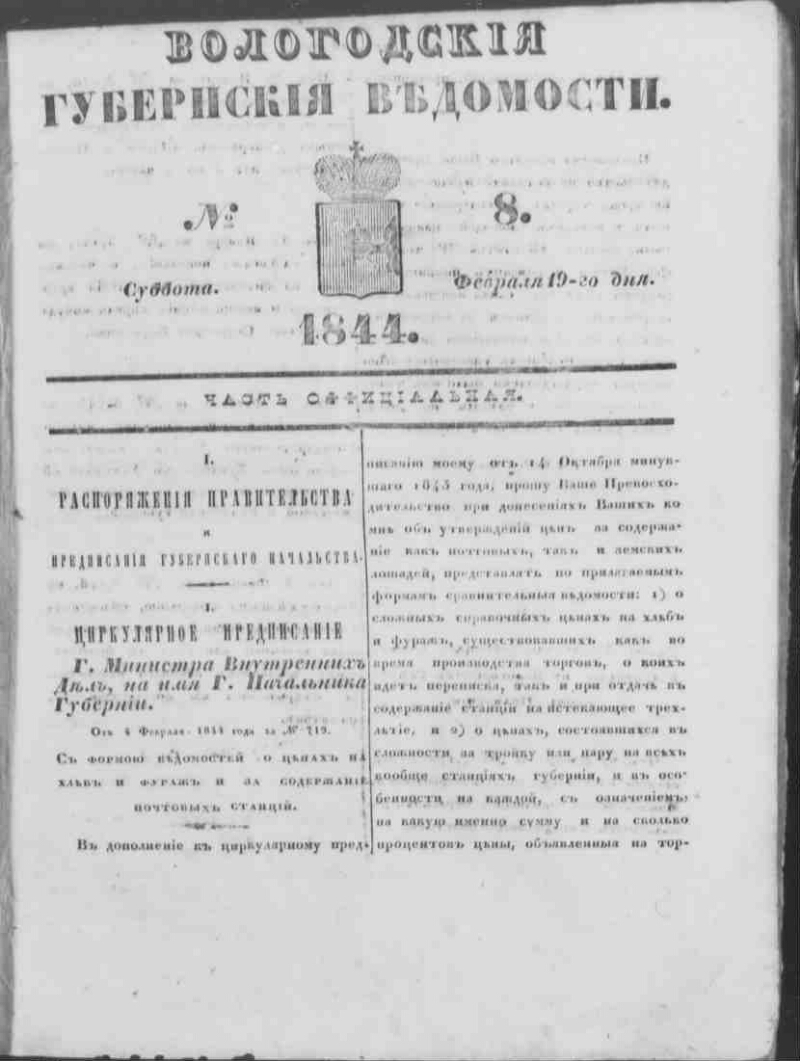 ВОЛОГОДСКІЯ
ГУБЕРНСКІЯ ВѢДОМОСТИ.
№ 8.
Суббота. Февраля 19-го дня.
1844.
ЧАСТЬ ОФФИЦІАЛЬНАЯ.
I.
РАСПОРЯЖЕНІЯ ПРАВИТЕЛЬСТВА
и
ПРЕДПИСАНІЯ ГУБЕРНСКАГО НАЧАЛЬСТВА.
1.
ЦИРКУЛЯРНОЕ ПРЕДПИСАНІЕ
Г. Министра Внутреннихъ
Дѣлъ, на имя Г. Начальника
Губерніи.
Отъ 4 Февраля 1844 года за № 719.
Съ формою вѣдомостей о цѣнахъ на
хлѣбъ и фуражъ и за содержаніе
почтовыхъ станцій.
Въ дополненіе къ циркулярному пред-
писанію моему отъ 14 Октября минув-
шаго 1843 года, прошу Ваше Превосхо-
дительство при донесеніяхъ Вашихъ ко
мнѣ объ утвержденіи цѣнъ за содержа-
ніе какъ почтовыхъ, такъ и земскихъ
лошадей, представлять по прилагаемымъ
формамъ сравнительныя вѣдомости: 1) о
сложныхъ справочныхъ цѣнахъ на хлѣбъ
и фуражъ, существовавшихъ какъ во
время производства торговъ, о коихъ
идетъ переписка, такъ и при отдачѣ въ
содержаніе станцій на истекающее трех-
лѣтіе, и 2) о цѣнахъ, состоявшихся въ
сложности за тройку или пару на всѣхъ
вообще станціяхъ губерніи, и въ осо-
бенности на каждой, съ означеніемъ:
на какую именно сумму и на сколько
процентовъ цѣны, объявленныя на тор-